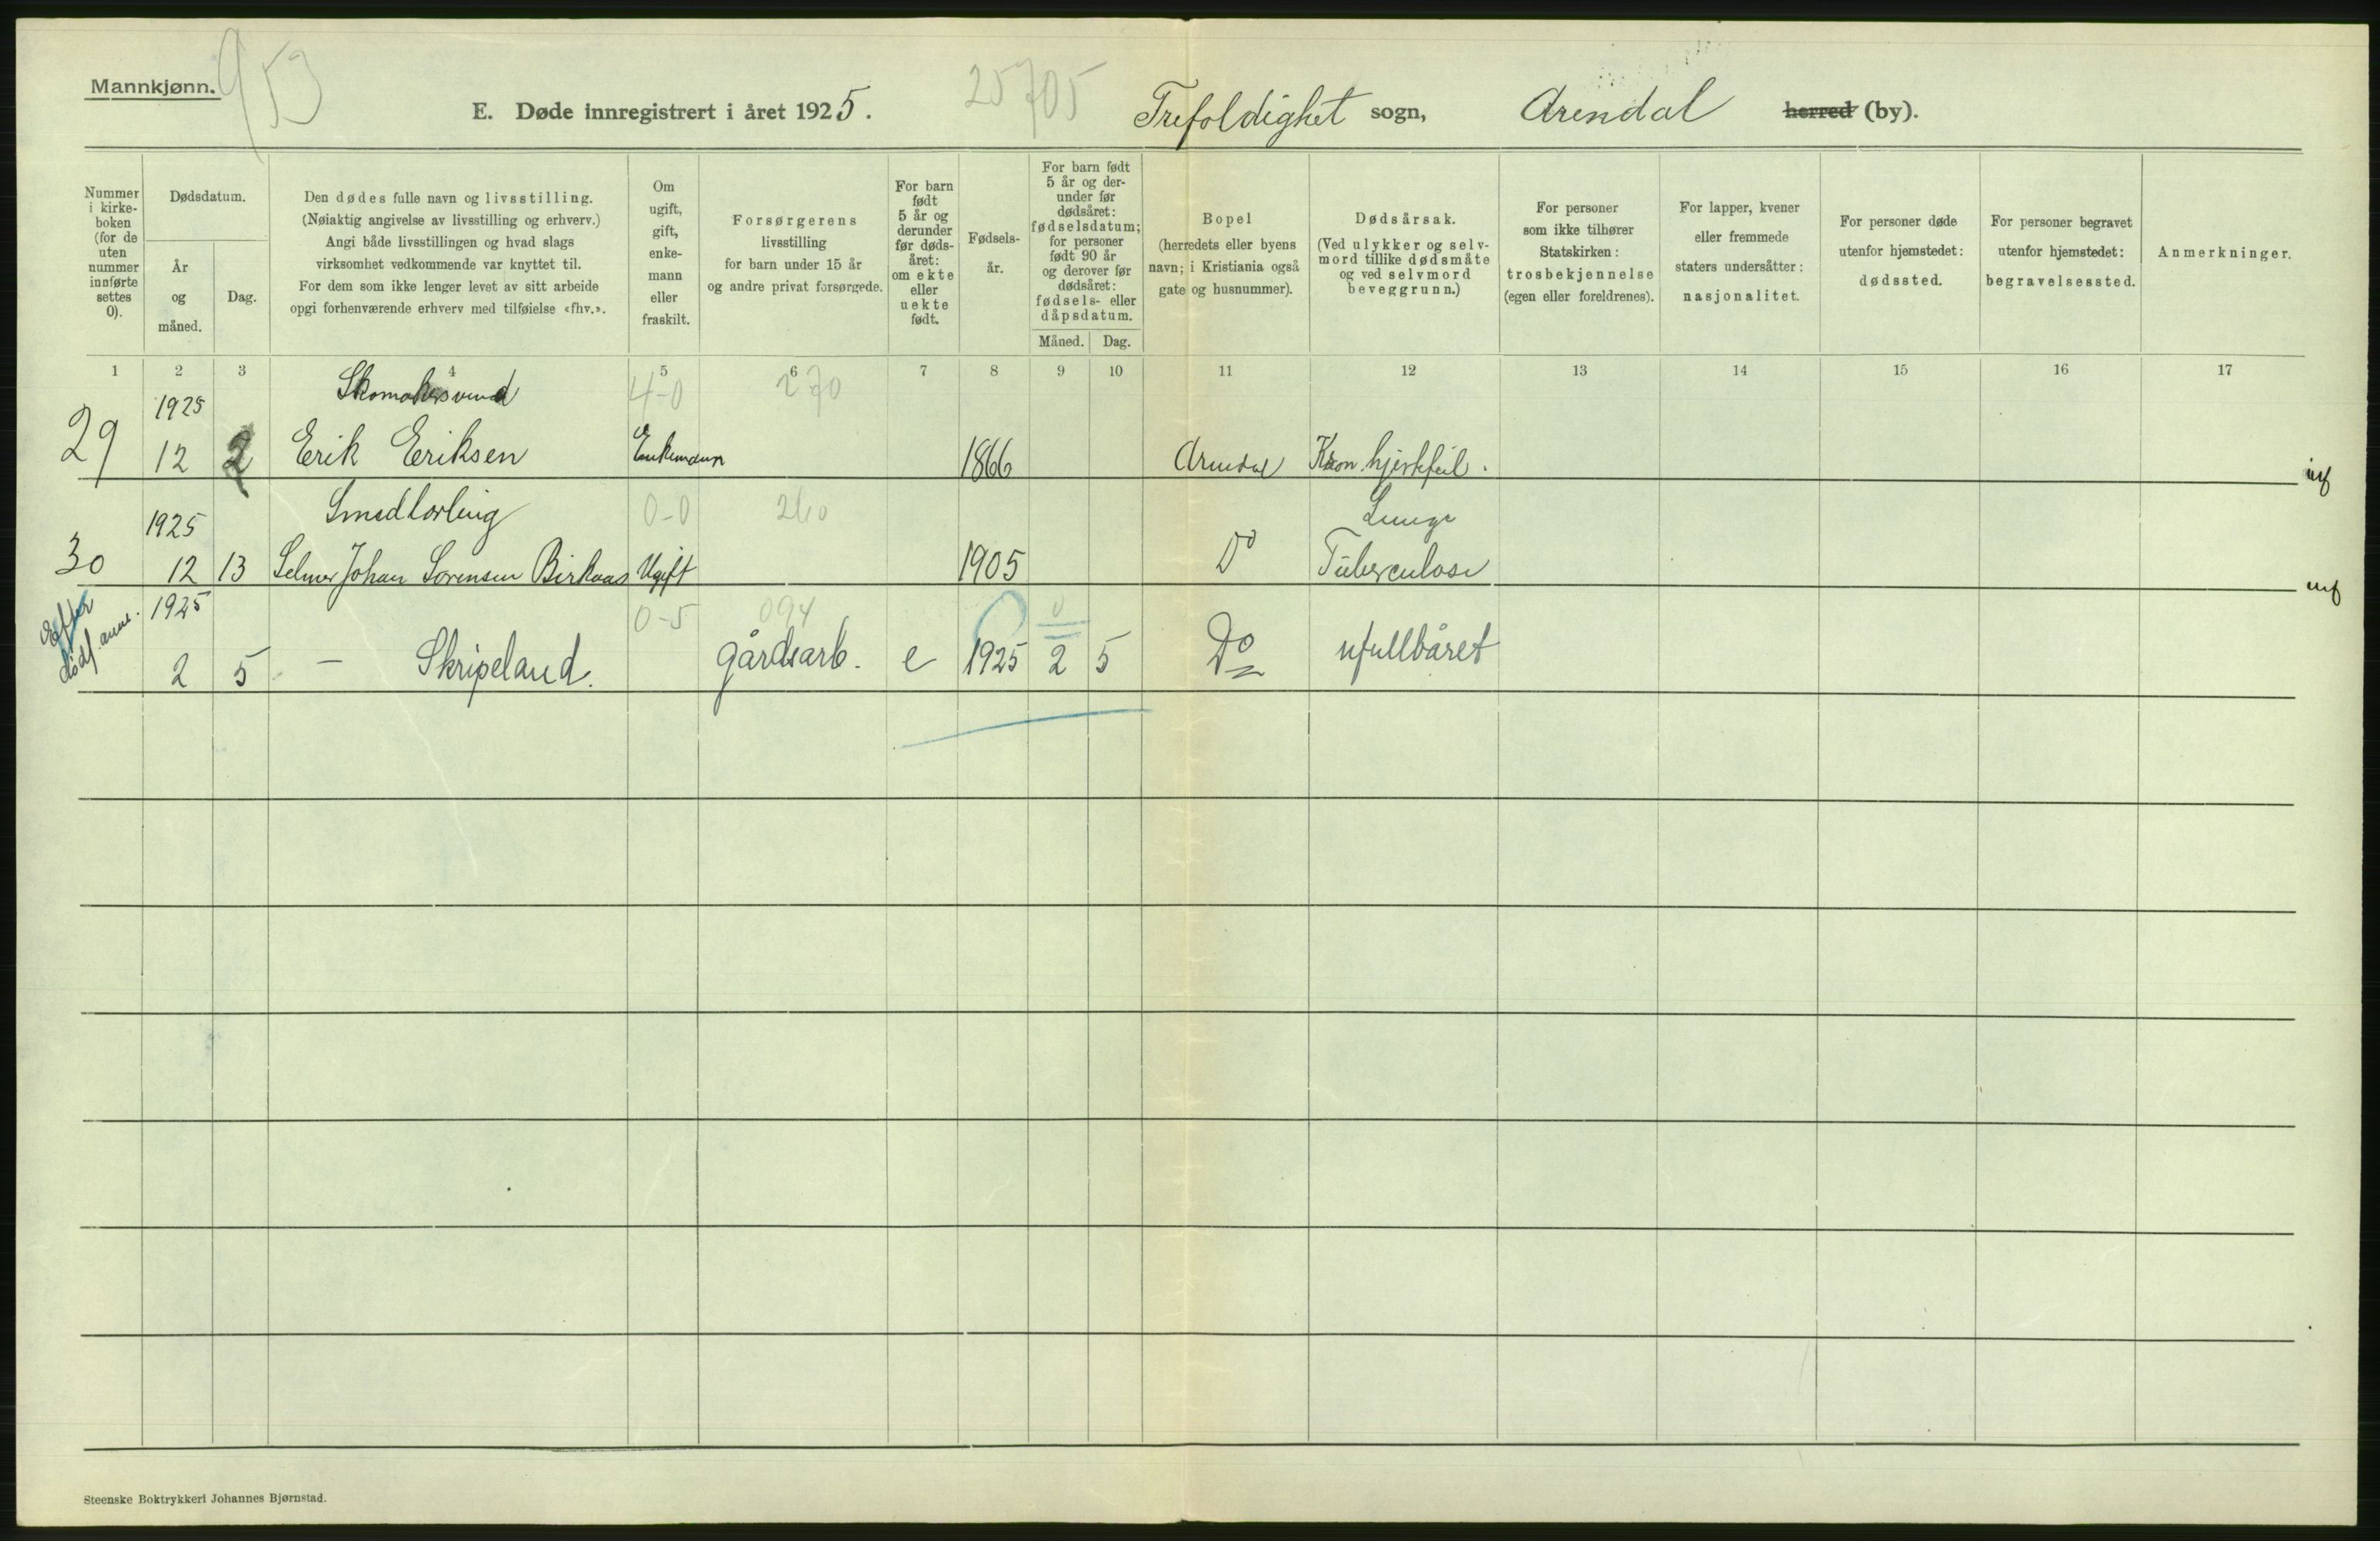 Mannkjønn.
953
25705
E. Døde innregistrert i året 1925. Trefoldighet sogn, Arendal herred (by).
Nummer i kirke-boken (for de uten nummer innførte settes 0).
Dødsdatum.
År og måned.
Dag.
Den dødes fulle navn og livsstilling.
(Nøiaktig angivelse av livsstilling og erhverv.)
Angi både livsstillingen og hvad slags
virksomhet vedkommende var knyttet til.
For dem som ikke lenger levet av sitt arbeide
opgi forhenværende erhverv med tilføielse «fhv.».
Om ugift, gift, enke-mann eller fraskilt.
Forsørgerens
livsstilling
for barn under 15 år
og andre privat forsørgede.
For barn født 5 år og derunder før døds-året: om ekte eller uekte født.
Fødsels-år.
For barn født 5 år og der-under før dødsåret: fødselsdatum; for personer født 90 år og derover før dødsåret: fødsels- eller dåpsdatum.
Måned. Dag.
Bopel
(herredets eller byens
navn; i Kristiania også
gate og husnummer).
Dødsårsak.
(Ved ulykker og selv-
mord tillike dødsmåte
og ved selvmord
beveggrunn.)
For personer
som ikke tilhører
Statskirken:
trosbekjennelse
(egen eller foreldrenes).
For lapper, kvener
eller fremmede
staters undersåtter:
nasjonalitet.
For personer døde
utenfor hjemstedet:
dødssted.
For personer begravet
utenfor hjemstedet:
begravelsessted.
Anmerkninger.
1 2 3 4 5 6 7 8 9 10 11 12 13 14 15 16 17
1925 Skomakersvend 4-0 270
29 12 2 Erik Eriksen Enkemann 1866 Arendal Kron. hjertefeil.
1925 Smedlærling 0-0 260 Lunge
30 12 13 Selmer Johan Sørensen Birkaas Ugift 1905 Do Tuberculose
Efter dødf. anm. 1925 0-5 094 0
2 5 — Skripeland. gårdsarb. e 1925 2 5 Do ufullbåret
Steenske Boktrykkeri Johannes Bjørnstad.